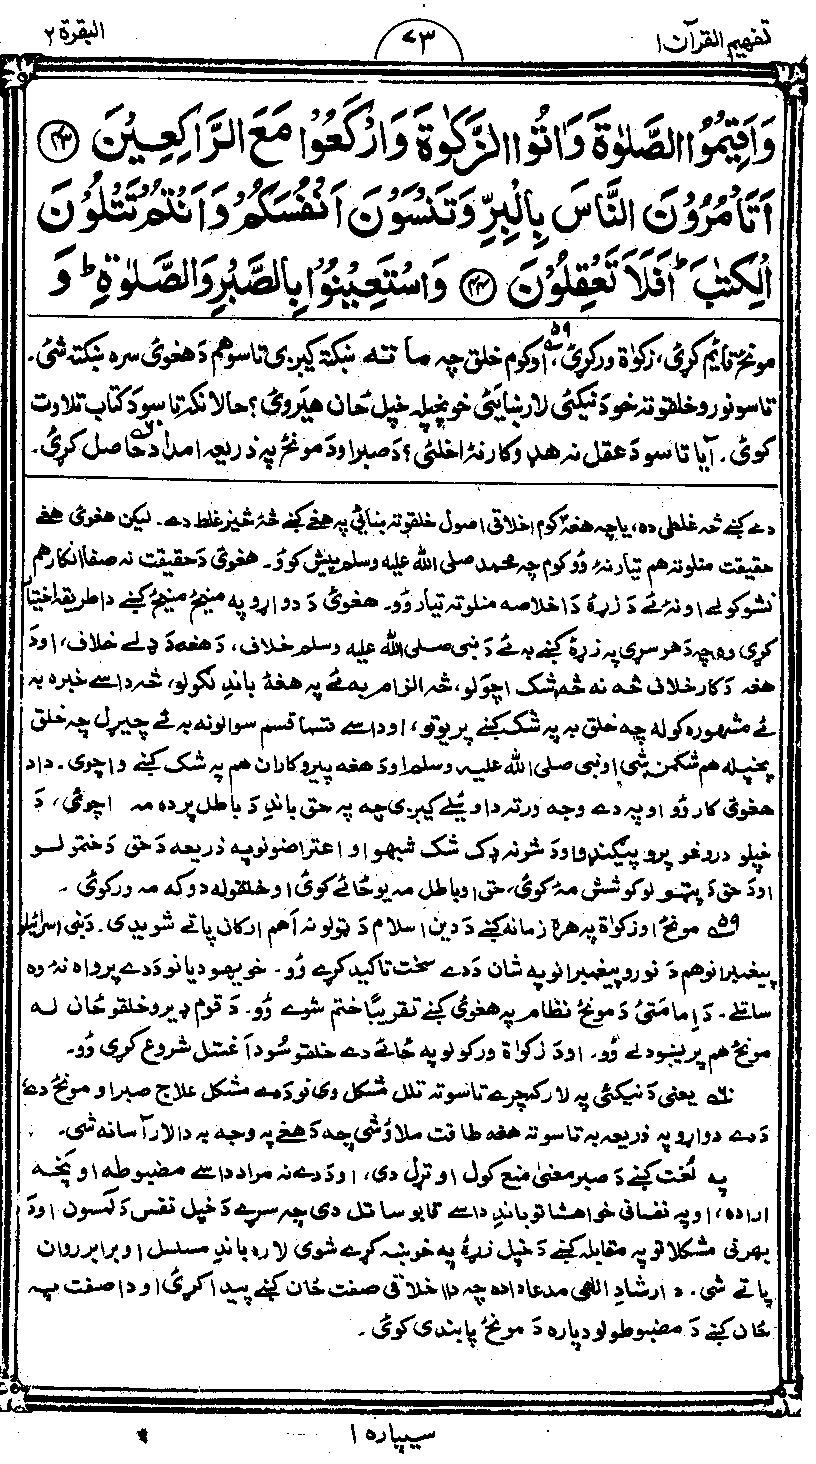 تفهیم القرآن ۱
۷۳
البقرة ۲
وَاَقِيْمُوا الصَّلٰوةَ وَاٰتُوا الزَّكٰوةَ وَارْكَعُوْا مَعَ الرَّاكِعِيْنَ ﴿۴۳﴾
اَتَاْمُرُوْنَ النَّاسَ بِالْبِرِّ وَتَنْسَوْنَ اَنْفُسَكُمْ وَاَنْتُمْ تَتْلُوْنَ
الْكِتٰبَ ؕ اَفَلَا تَعْقِلُوْنَ ﴿۴۴﴾ وَاسْتَعِيْنُوْا بِالصَّبْرِ وَالصَّلٰوةِ ؕ وَ
مونځ قایم کړئ، زکوٰة ورکړئ،۵۹ اوکوم خلق چه ماته ښکته کیږی تاسو هم دَ هغوئ سره ښکته شئ.
تاسو نورو خلقو ته خو دَ نیکئی لار ښایئی خو خپله خپل ځان هیروئ؟ حالانکه تاسو دَ کتاب تلاوت
کوئ. آیا تاسو دَ عقل نه هډو کار نۀ اخلئی؟ دَ صبر او دَ مونځ په ذریعه امداد حاصل کړئ.۶۰
دے کښے څه غلطی ده، یا چه هغه کوم اخلاقی اصول خلقو ته ښائی په هغے کښے څۀ څیز غلط دے. لیکن هغوئ هغے
حقیقت منلو ته هم تیار نۀ وُو کوم چه محمد صلی الله علیه وسلم پیش کوو. هغوئ دَ حقیقت نه صفا انکار هم
نشو کولے او نه ئے دَ زړۀ دَ اخلاصه منلو ته تیار وُو. هغوئ دَ دواړو په مینځ مینځ کښے دا طریقه اختیار
کړی وه چه دَ هر سړی په زړۀ کښے به ئے دَ نبی صلی الله علیه وسلم خلاف، دَ هغه دَ ډلے خلاف، او دَ
هغه دَ کار خلاف څه نه څه شک اچولو، څه الزام به ئے په هغۀ باندِ لګولو، څه داسے خبره به
ئے مشهوره کوله چه خلق به په شک کښے پریوتو، او داسے قسم قسم سوالونه به ئے چیړل چه خلق
پخپله هم شکمن شی او نبی صلی الله علیه وسلم او دَ هغه پیروکاران هم په شک کښے واچوی. دا دَ
هغوئ کار وُو او په دے وجه ورته دا ویلے کیږی چه په حق باندِ دَ باطل پرده مه اچوئ، دَ
خپلو دروغو پروپیګنډو او دَ شونه ډک شک شبهو او اعتراضونو په ذریعه دَ حق دَ ختمولو
او دَ حق دَ پټولو کوشش مۀ کوئ، حق او باطل مه یو ځائے کوئ او خلقو له دوکه مه ورکوئ.
۵۹ مونځ او زکوٰة په هره زمانه کښے دَ دین اسلام دَ ټولو نه اهم ارکان پاتے شویدی. دَ بنی اسرائیلو
پیغمبرانو هم دَ نورو پیغمبرانو په شان دَ دے سخت تاکید کړے وُو. خو یهودیانو دَ دے پرواه نۀ وه
ساتلے. دَ امامتئ دَ مونځ نظام په هغوئ کښے تقریباً ختم شوے وُو. دَ قوم ډیرو خلقو ځان له
مونځ هم پریښودلے وُو. او دَ زکوٰة ورکولو په ځائے دے خلقو سُود اغستل شروع کړی وُو.
۶۰ یعنی دَ نیکئی په لار کښے تلل تاسو ته مشکل وی نو دَ دے مشکل علاج صبر او مونځ دے
دَ دے دواړو په ذریعه به تاسو ته هغه طاقت ملاوشی چه دَ هغے په وجه به دا لار آسانه شی.
په لُغت کښے دَ صبر معنیٰ منع کول او تړل دی، او دَ دے نه مراد داسے مضبوطه او پخه
اراده، او په نفسانی خواهشاتو باندِ داسے قابو ساتل دی چه سړے دَ خپل نفس دَ لمسون او دَ
بهرنی مشکلاتو په مقابله کښے دَ خپل زړۀ په خوښه کړے شوی لاره باندِ مسلسل او برابر روان
پاتے شی. د ارشادِ الٰهی مدعا دا ده چه دا اخلاقی صفت ځان کښے پیدا کړئ او دا صفت په
ځان کښے دَ مضبوطولو دپاره دَ مونځ پابندی کوئ.
سیپاره ۱